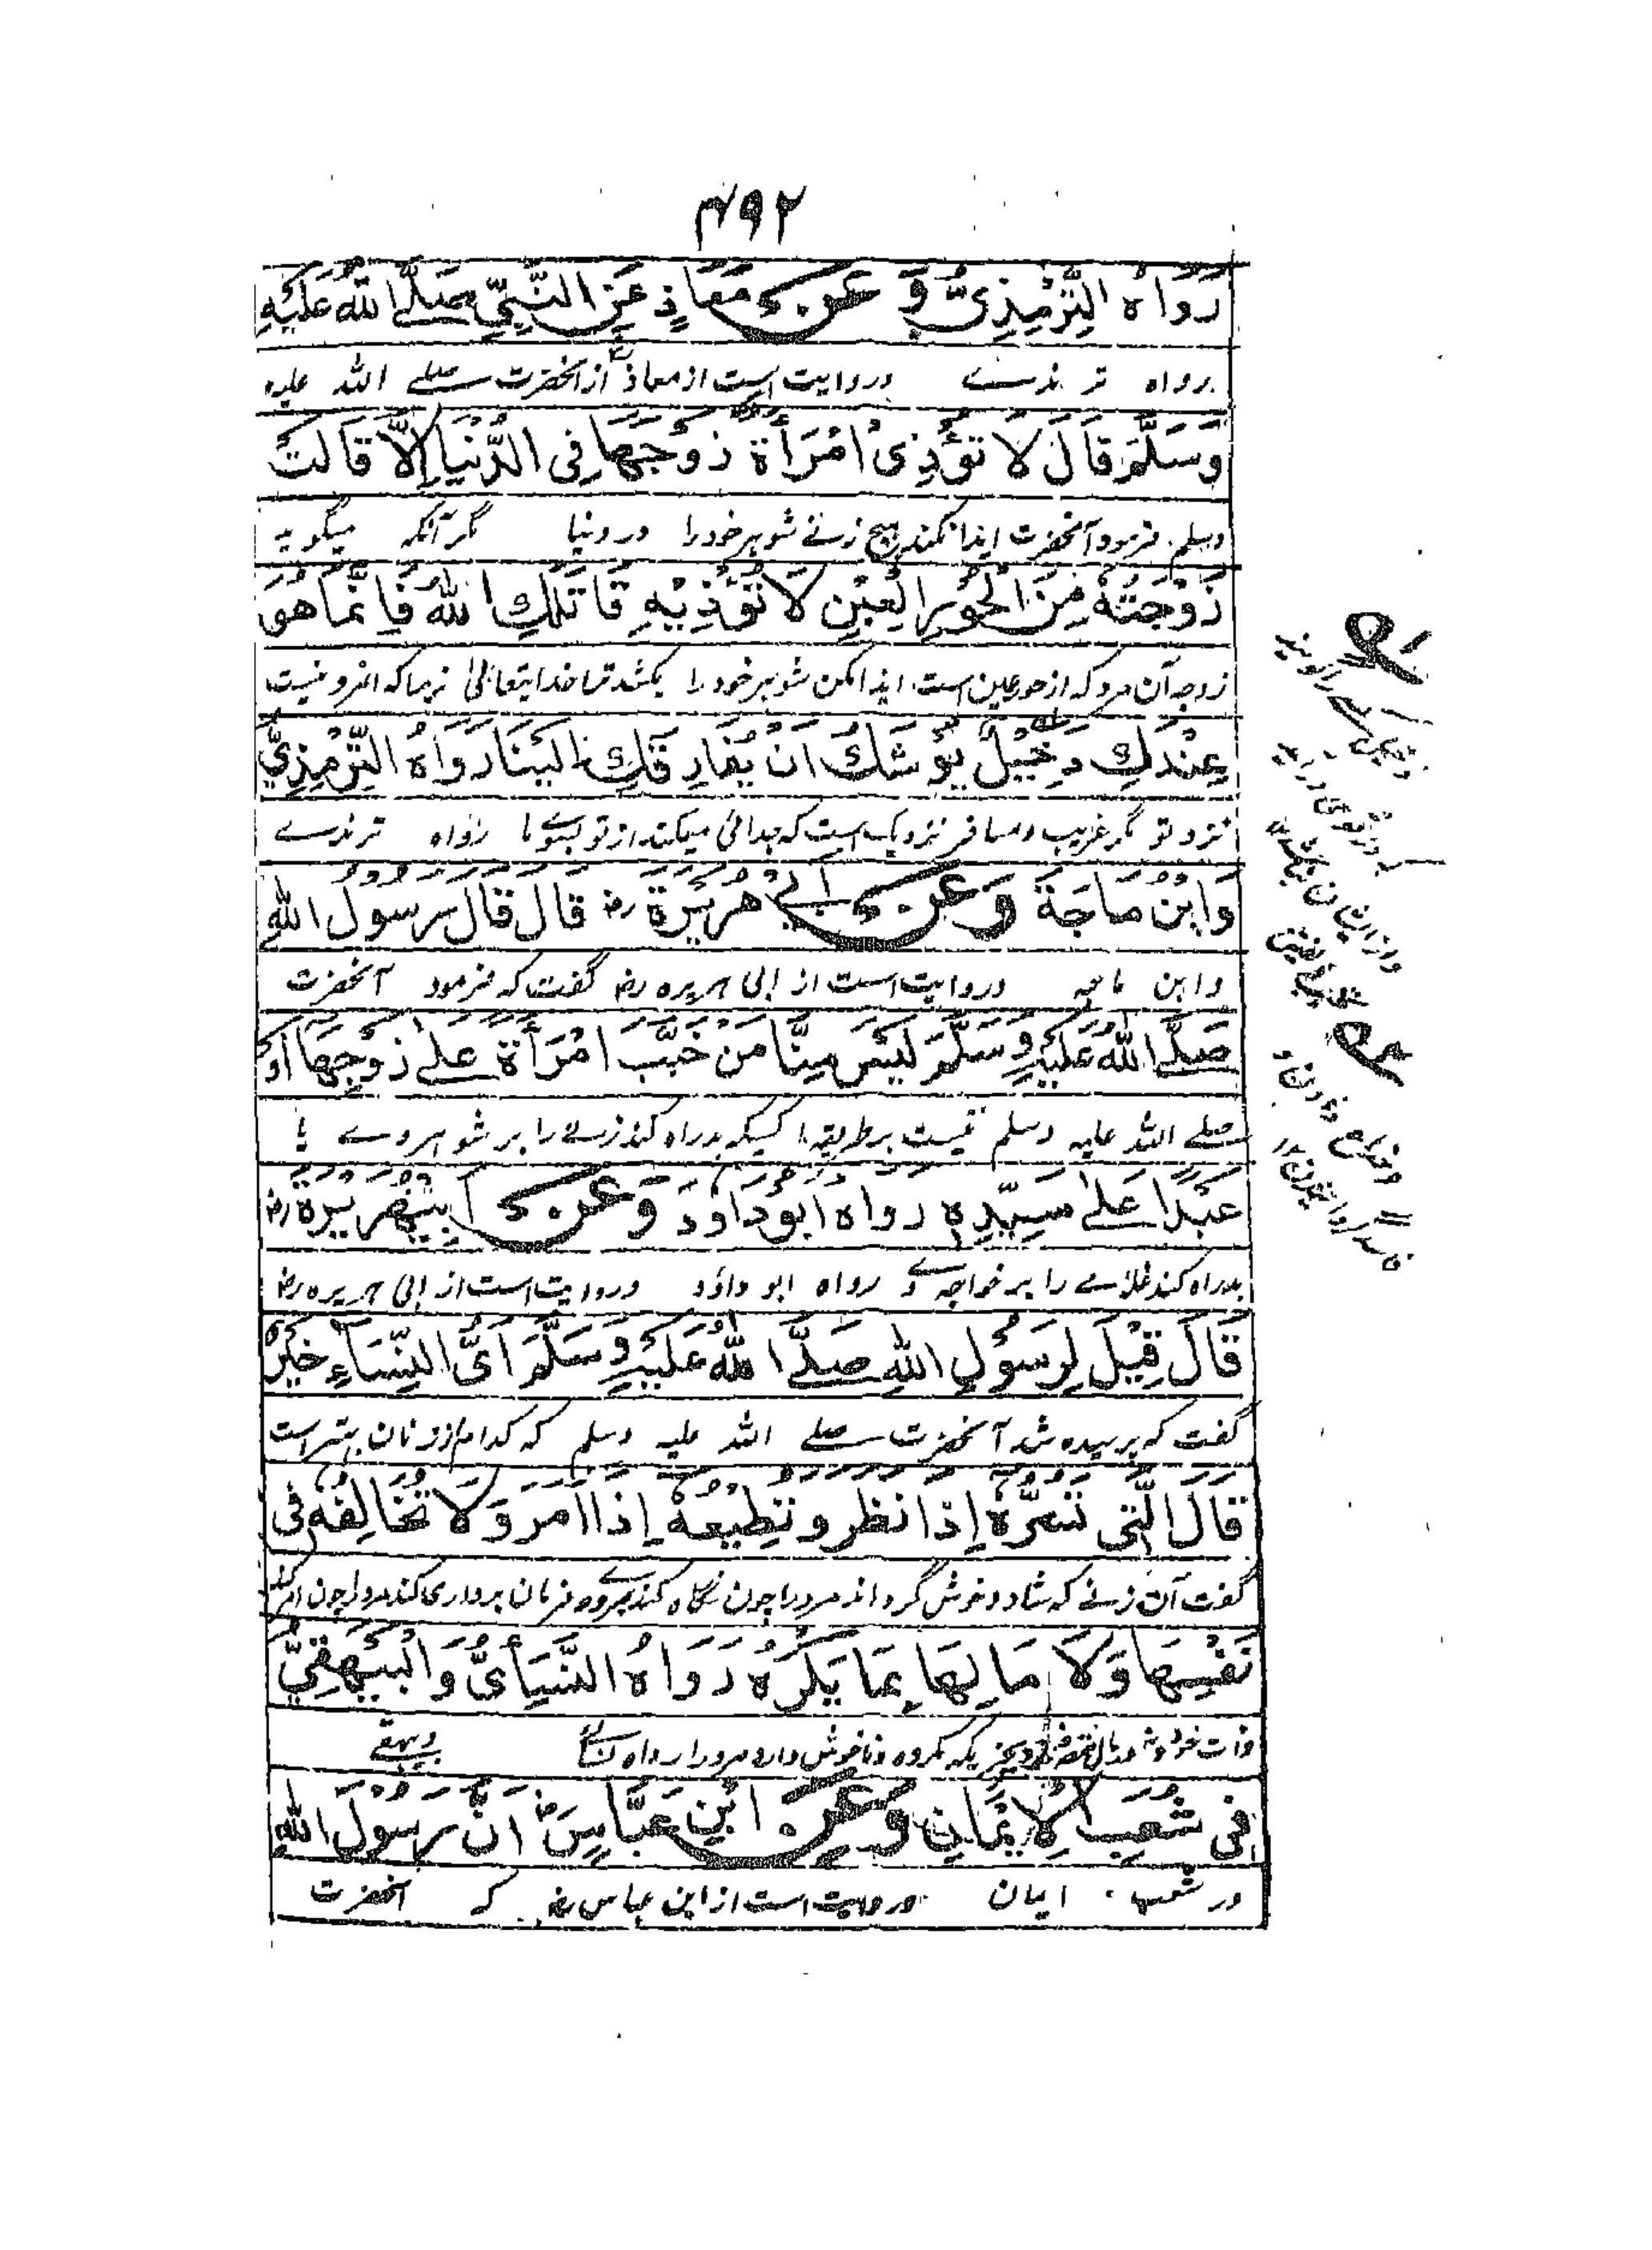 ۴۹۲
رَوَاهُ التِّرْمِذِيُّ وَعَنْ مَعَاذٍ عَنِ النَّبِيِّ صَلَّى اللهُ عَلَيْهِ
رواه ترمذے وروایت است از معاذ از آنحضرت صلے الله علیه
وَسَلَّمَ قَالَ لَا تُؤْذِیْ امْرَأَةٌ زَوْجَهَا فِی الدُّنْيَا إِلَّا قَالَتْ
وسلم فرمود آنحضرت ایذا نکند هیچ زنے شوہر خود را در دنیا مگر آنکه میگوید
زَوْجَتُهُ مِنَ الْحُوْرِ الْعِيْنِ لَا تُؤْذِيْهِ قَاتَلَكِ اللهُ فَإِنَّمَا هُوَ
زوجه آن مرد که از حورعین است ایذا مکن شوہر خود را بکشد ترا خدایتعالیٰ زیرا که آنمرد نیست
عِنْدَكِ دَخِيْلٌ يُوْشَكُ اَنْ يُفَارِقَكِ إِلَيْنَا رَوَاهُ التِّرْمِذِيُّ
نزد تو مگر غریب و مسافر نزدیک است که جدائی میکند از تو بسوے ما رواه ترمذے
وَابْنُ مَاجَةَ وَعَنْ اَبِیْ هُرَيْرَةَ رض قَالَ قَالَ رَسُوْلُ اللهِ
وابن ماجه وروایت است از ابی ہریره رض گفت که فرمود آنحضرت
صَلَّى اللهُ عَلَيْهِ وَسَلَّمَ لَيْسَ مِنَّا مَنْ خَبَّبَ امْرَأَةً عَلَىٰ زَوْجِهَا اَوْ
صلے الله علیه وسلم نیست بر طریقه ما کسیکه بدراه کند زنے را بر شوہر وے یا
عَبْدًا عَلَىٰ سَيِّدِهٖ رواه ابوداود وَعَنْ اَبِیْ هُرَيْرَةَ رض
بدراه کند غلامے را بر خواجه وے رواه ابو داؤد وروایت است از ابی ہریره رض
قَالَ قِيْلَ لِرَسُوْلِ اللهِ صَلَّى اللهُ عَلَيْهِ وَسَلَّمَ اَیُّ النِّسَاءِ خَيْرٌ
گفت که پرسیده شد آنحضرت صلے الله علیه وسلم که کدام از زنان بہتر است
قَالَ الَّتِی تَسُرُّهُ إِذَا نَظَرَ وَتُطِيْعُهُ إِذَا اَمَرَ وَلَا تُخَالِفُهُ فِی
گفت آن زنے که شاد و خوش گرداند مرد را چون نگاه کند بسوے وے و فرمان برداری کند مرد را چون امر کند
نَفْسِهَا وَلَا مَالِهَا بِمَا يَكْرَهُ رَوَاهُ النَّسَائِیُّ وَالْبَيْهَقِيُّ
ذات خود و نه در مال خود بچیزیکه مکروه و ناخوش دارد مرد آنرا رواه نسائے وبیہقے
فِی شُعَبِ الْاِيْمَانِ وَعَنِ ابْنِ عَبَّاسٍ رض اَنَّ رَسُوْلَ اللهِ
در شعب ایمان وروایت است از ابن عباس رض که آنحضرت